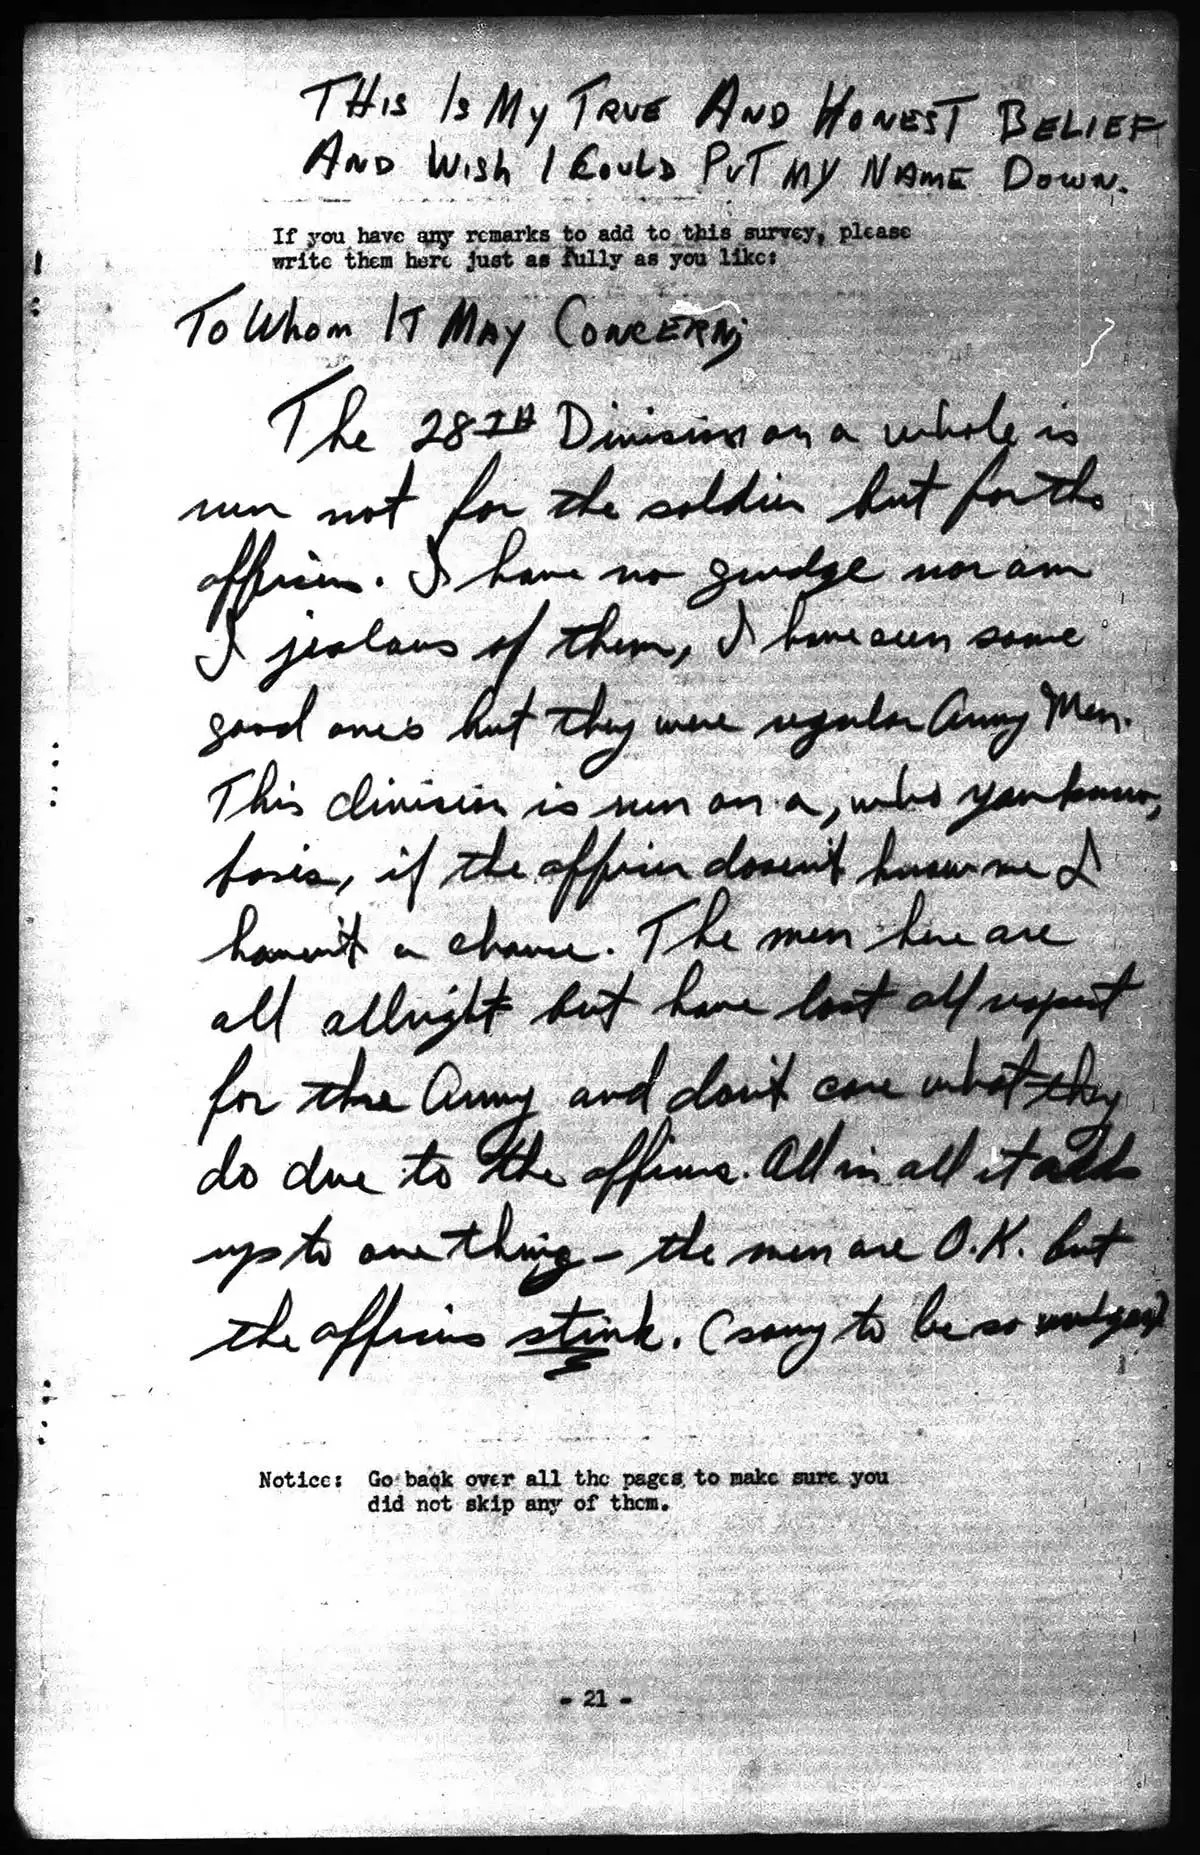 THIS IS MY TRUE AND HONEST BELIEF
AND WISH I COULD PUT MY NAME DOWN.
If you have any remarks to add to this survey, please
write them here just as fully as you like:
TO WHOM IT MAY CONCERN;
The 28TH Division on a whole is
run not for the soldier but for the
officers. I have no grudge nor am
I jealous of them, I have seen some
good one's but they were regular Army Men.
This division is run on a, who you know,
basis, if the officer dosen't know me I
haven't a chance. The men here are
all allright but have lost all respect
for the Army and don't care what they
do due to the officers. All in all it adds
up to one thing - the men are O.K. but
the officers stink. (sorry to be so
Notice: Go back over all the pages to make sure you
did not skip any of them.
- 21 -